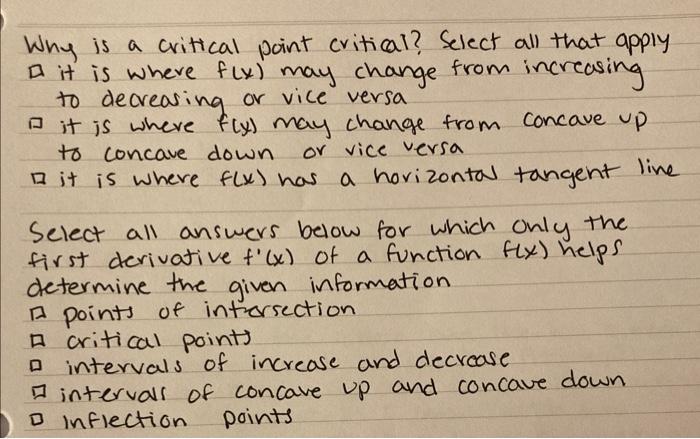 Why is a critical point critical? Select all that apply
□ it is where f(x) may change from increasing
to decreasing or vice versa
□ it is where f(x) may change from concave up
to concave down or vice versa
□ it is where f(x) has a horizontal tangent line
Select all answers below for which only the
first derivative f'(x) of a function f(x) helps
determine the given information
□ points of intersection
□ critical points
□ intervals of increase and decrease
□ intervals of concave up and concave down
□ inflection points